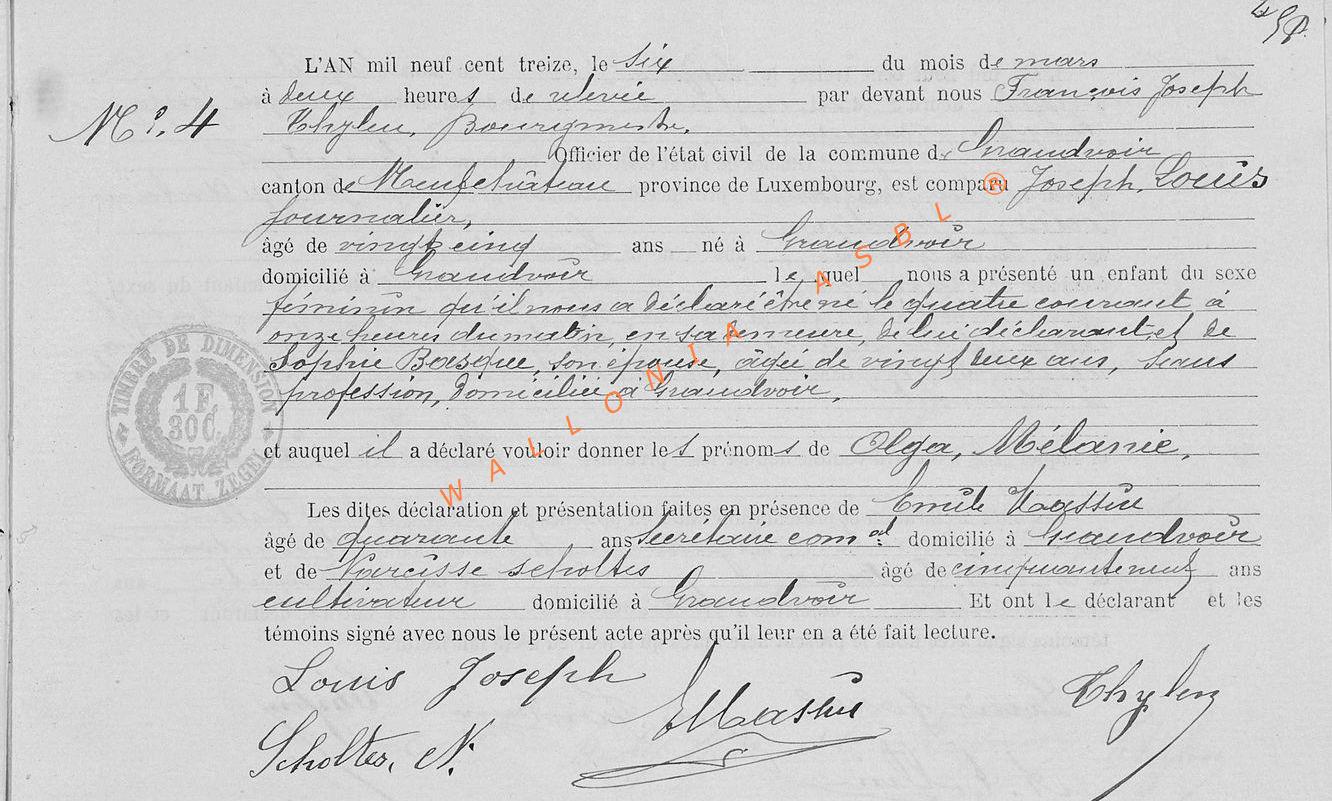 L'AN mil neuf cent treize, le six du mois de mars
à deux heures de relevée par devant nous François Joseph
N°. 4
Thylen, Bourgmestre,
Officier de l'état civil de la commune de Grandvoir
canton de Neufchâteau province de Luxembourg, est comparu Joseph, Louis
journalier,
âgé de vingt cinq ans né à Grandvoir
domicilié à Grandvoir lequel nous a présenté un enfant du sexe
féminin qu'il nous a déclaré être né le quatre courant à
onze heures du matin, en sa demeure, de lui déclarant, et de
Sophie Basque, son épouse, âgée de vingt deux ans, sans
profession, domiciliée à Grandvoir,
TIMBRE DE DIMENSION
1 F.
30 C.
FORMAAT ZEGEL
et auquel il a déclaré vouloir donner les prénoms de Olga, Mélanie,
Les dites déclaration et présentation faites en présence de Emile
âgé de quarante ans Secrétaire comal domicilié à Grandvoir
et de Narcisse Scholtes âgé de cinquante neuf ans
cultivateur domicilié à Grandvoir Et ont le déclarant et les
témoins signé avec nous le présent acte après qu'il leur en a été fait lecture.
Louis Joseph
Thylen
Scholtes, N.
WALLONIA ASBL ®